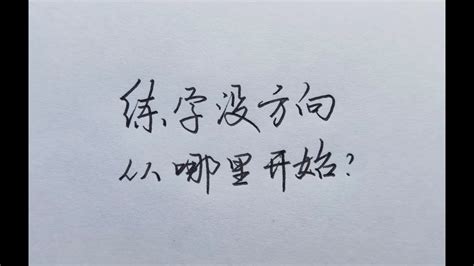 练字没方向
从哪里开始?